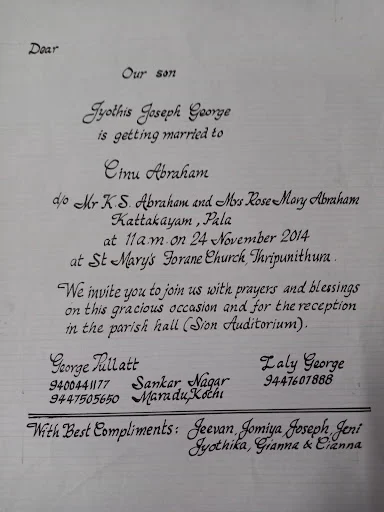 Dear
Our son
Jyothis Joseph George
is getting married to
Cinu Abraham
d/o Mr K.S. Abraham and Mrs Rose Mary Abraham
Kattakayam, Pala
at 11 a.m. on 24 November 2014
at St Mary's Forane Church, Thripunithura.
We invite you to join us with prayers and blessings
on this gracious occasion and for the reception
in the parish hall (Sion Auditorium).
George Pullatt Laly George
9400441177 Sankar Nagar 9447607888
9447505650 Maradu, Kochi
With Best Compliments: Jeevan, Jomiya Joseph, Jeni
Jyothika, Gianna & Cianna